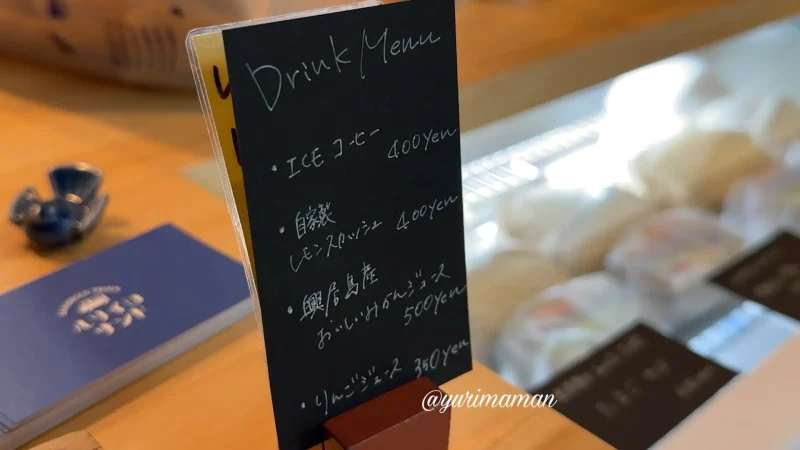 Drink Menu
・ICE コーヒー 400yen
・自家製
レモンスカッシュ 400yen
・興居島産
おいしいみかんジュース
500yen
・りんごジュース 350yen
@yurimaman